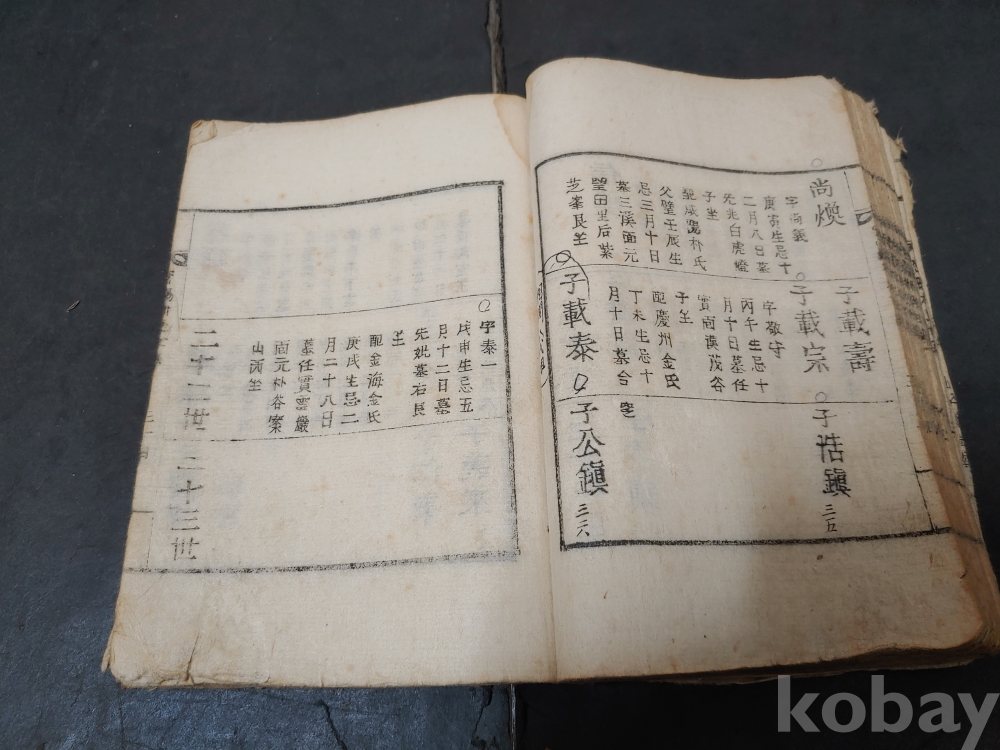 尚煥
字尚義
庚寅生忌十
二月八日墓
先兆白虎嶝
子坐
配咸陽朴氏
父璧壬辰生
忌三月十日
墓三溪面元
望田里后紫
芝峯艮坐
子載壽
子載宗
字敬守
丙午生忌十
月十日墓任
實南漠茂谷
子坐
配慶州金氏
丁未生忌十
月十日墓合
窆
子載泰
子浩鎭 三五
子公鎭 三六
字泰一
戌申生忌五
月十二日墓
先妣墓右艮
坐
配金海金氏
庚戌生忌二
月二十八日
墓任實雲巖
面元朴谷案
山丙坐
二十二世
二十三世
kobay